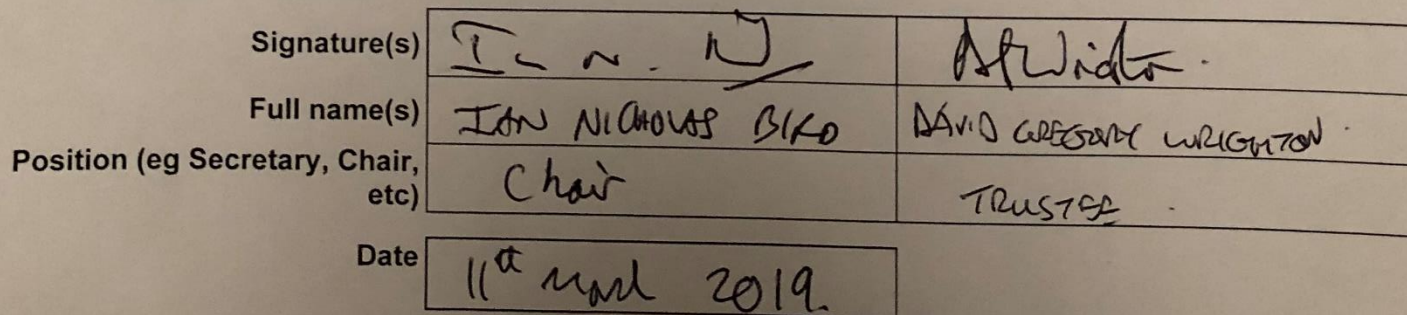 Signature(s)
Full name(s) IAN NICHOLAS BIRD DAVID GREGORY WRIGHTON
Position (eg Secretary, Chair,
etc) Chair TRUSTEE
Date 11th March 2019.